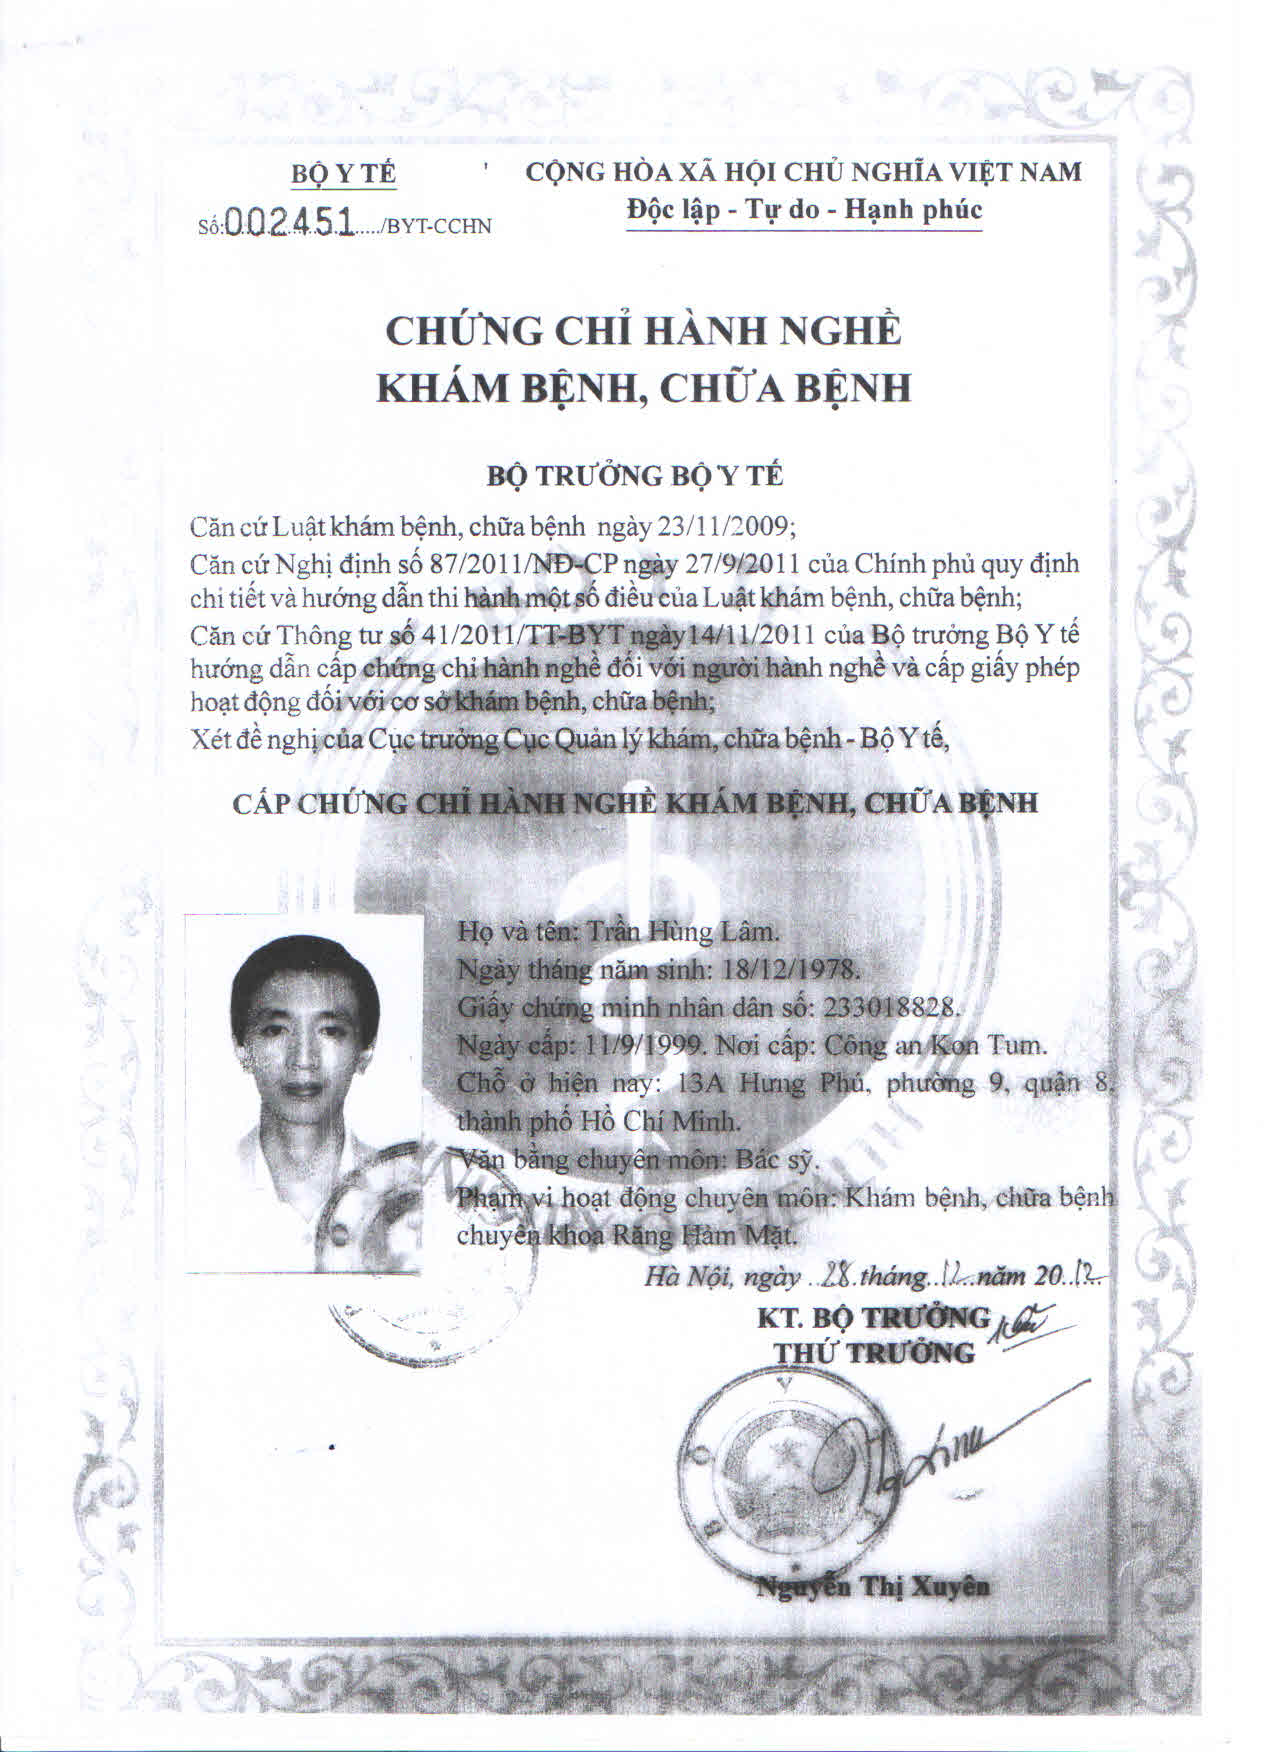 BỘ Y TẾ
CỘNG HÒA XÃ HỘI CHỦ NGHĨA VIỆT NAM
Số:002451...../BYT-CCHN
Độc lập - Tự do - Hạnh phúc
CHỨNG CHỈ HÀNH NGHỀ
KHÁM BỆNH, CHỮA BỆNH
BỘ TRƯỞNG BỘ Y TẾ
Căn cứ Luật khám bệnh, chữa bệnh ngày 23/11/2009;
Căn cứ Nghị định số 87/2011/NĐ-CP ngày 27/9/2011 của Chính phủ quy định
chi tiết và hướng dẫn thi hành một số điều của Luật khám bệnh, chữa bệnh;
Căn cứ Thông tư số 41/2011/TT-BYT ngày 14/11/2011 của Bộ trưởng Bộ Y tế
hướng dẫn cấp chứng chỉ hành nghề đối với người hành nghề và cấp giấy phép
hoạt động đối với cơ sở khám bệnh, chữa bệnh;
Xét đề nghị của Cục trưởng Cục Quản lý khám, chữa bệnh - Bộ Y tế,
CẤP CHỨNG CHỈ HÀNH NGHỀ KHÁM BỆNH, CHỮA BỆNH
Họ và tên: Trần Hùng Lâm.
Ngày tháng năm sinh: 18/12/1978.
Giấy chứng minh nhân dân số: 233018828.
Ngày cấp: 11/9/1999. Nơi cấp: Công an Kon Tum.
Chỗ ở hiện nay: 13A Hưng Phú, phường 9, quận 8,
thành phố Hồ Chí Minh.
Văn bằng chuyên môn: Bác sỹ.
Phạm vi hoạt động chuyên môn: Khám bệnh, chữa bệnh
chuyên khoa Răng Hàm Mặt.
Hà Nội, ngày ..28.tháng..12..năm 20..12..
KT. BỘ TRƯỞNG
THỨ TRƯỞNG
Nguyễn Thị Xuyên